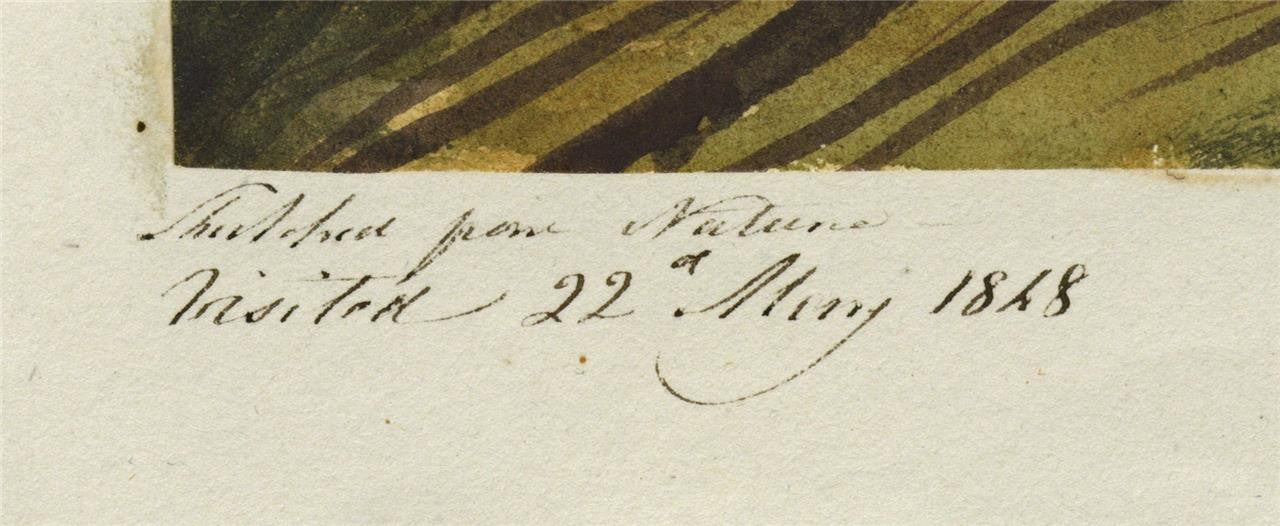 Sketched from Nature -
Visited 22d May 1848